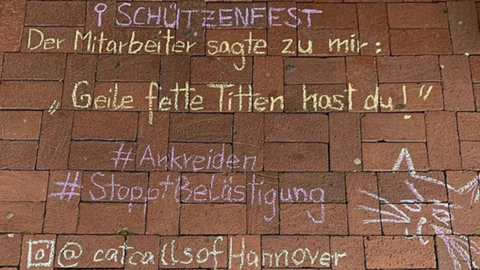 SCHÜTZENFEST
Der Mitarbeiter sagte zu mir:
„Geile fette Titten hast du!“
#Ankreiden
#StopptBelästigung
@catcallsofHannover